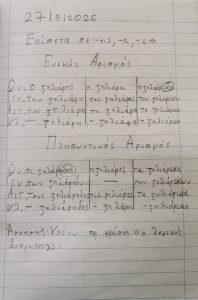 27/3/2026
Επίθετα σε -ης, -α, -ικο
Ενικός Αριθμός
Ον. ο ζηλιάρης η ζηλιάρα το ζηλιάρικο
Γεν. του ζηλιάρη της ζηλιάρας του ζηλιάρικου
Αιτ. τον ζηλιάρη τη ζηλιάρα το ζηλιάρικο
Κλ. — ζηλιάρη — ζηλιάρα — ζηλιάρικο
Πληθυντικός Αριθμός
Ον. οι ζηλιάρηδες οι ζηλιάρες τα ζηλιάρικα
Γεν. των ζηλιάρηδων — των ζηλιάρικων
Αιτ. τους ζηλιάρηδες τις ζηλιάρες τα ζηλιάρικα
Κλ. — ζηλιάρηδες - ζηλιάρες - ζηλιάρικα
Άσκηση: Κλίνω τη φράση: ο